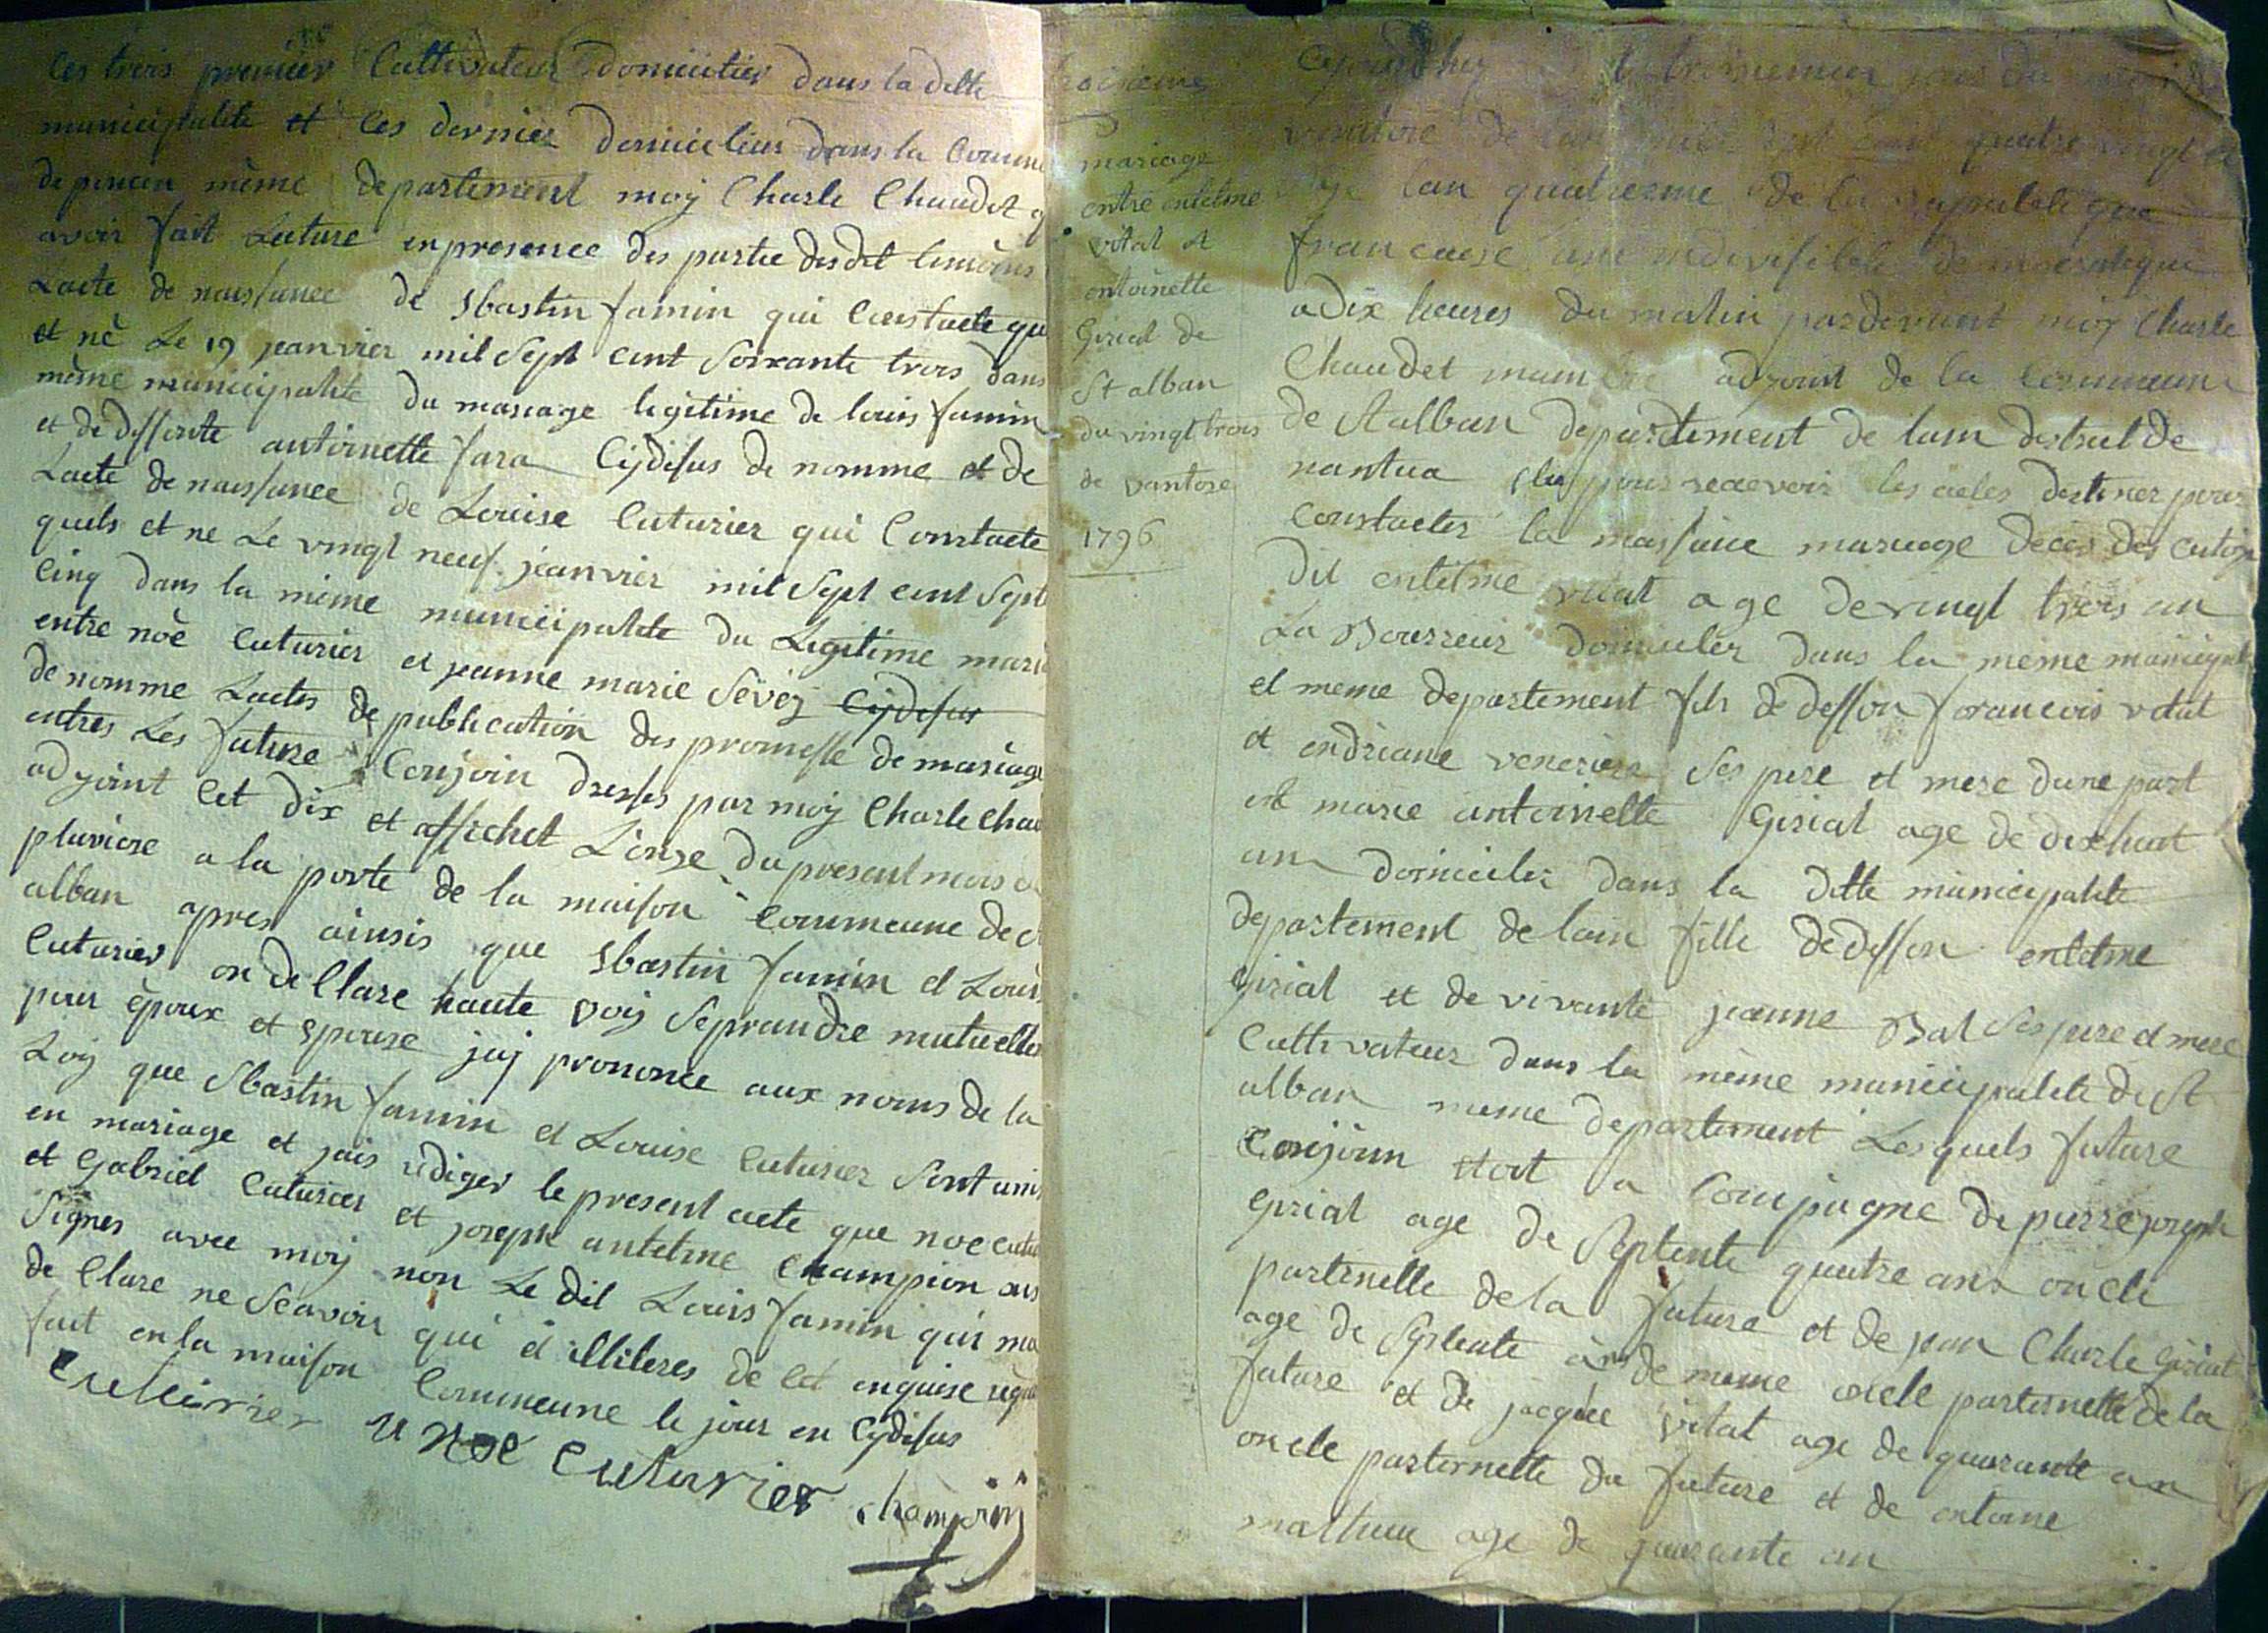 Ces trois premier Cultivateur domicilier dans la ditte
municipalite et Ces dernier domicilier dans la Comm
departement même departement moÿ Charle Chaudet
avoir fait Lecture en presence des partie desdit temoins
Lacte de naissance de Sbastin famin qui Constacte que
et né Le 19 jeanvier mil Sept Cent Soixante trois dans
même municipalite du mariage legitime de louis famin
et de deffonte antoinette fara Cÿdesus de nomme et de
Lacte de naissance de Louise Cuturier qui Constacte
quels et ne Le vingt neuf jeanvier mil Sept Cent Sept
Cinq dans la même municipalite du Legitime mari
entre noè Cuturier et jeanne marie Sévéÿ Cÿdesus
de nomme Lactes de publication des promesse de mariage
entres Les future Conjoin dresses par moÿ Charle Chau
adjoint Cet dix et affichet Lonze du present mois
pluviose a la porte de la maison Commeune de
alban apres ainsis que Sbastin famin et Louis
Cuturier on de Clare haute voiÿ Seprandre mutuelle
pour époux et epouse jaÿ prononce aux noms de la
Loÿ que Sbastin famin et Louise Cuturier Sont unis
en mariage et jais rediger le present acte que noe cutu
et Gabriel Cuturier et joseph antelme Champion ons
Signes avec moÿ non Le dit Louis famin qui ma
de Clare ne Scavoir qui d illiteres de Cet enquise requi
fait en la maison Commeune le jour en Cÿdesus
Cuturier noé Cuturier champion
mariage
entre entelme
vital et
entoinette
Girial de
St alban
du vingt trois
de vantose
1796
quatre vingt
lan quatrieme de la republique
francaise une indivisible democratique
a Dix heures du matin pardevant moÿ Charle
Chaudet adjoint de la Commeune
de St alban departement de lain distrect de
nantua elu pour recevoir les actes destiner pour
Constacter la naissance mariage deces des citoÿ
dit entelme vital age de vingt trois an
La Bourreur domicilier dans la même municipal
et meme departement fils de deffon francois vital
et andriane ses pere et mere dune part
et marie antoinette Girial age de dixhuit
an domicilier dans la ditte municipalite
departement de lain fille de deffon entelme
girial et de vivante jeanne Bal Ses pere et mere
Cultivateur dans la même municipalite de St
alban meme departement Lesquels future
Conjoin etoit a Compagne de pierre joseph
girial age de Septente quatre ans oncle
parternelle de la future et de jean Charle Girial
age de Septente ans de meme oncle parternelle de la
future et de jacquee vital age de quarante an
oncle parternelle du future et de entoine
age de quarante an